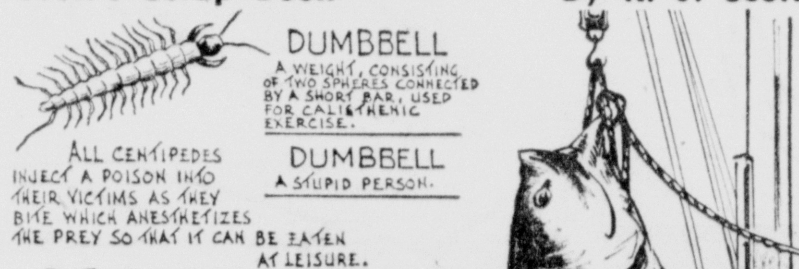 DUMBBELL
A WEIGHT, CONSISTING
OF TWO SPHERES CONNECTED
BY A SHORT BAR, USED
FOR CALISTHENIC
EXERCISE.
DUMBBELL
A STUPID PERSON.
ALL CENTIPEDES
INJECT A POISON INTO
THEIR VICTIMS AS THEY
BITE WHICH ANESTHETIZES
THE PREY SO THAT IT CAN BE EATEN
AT LEISURE.